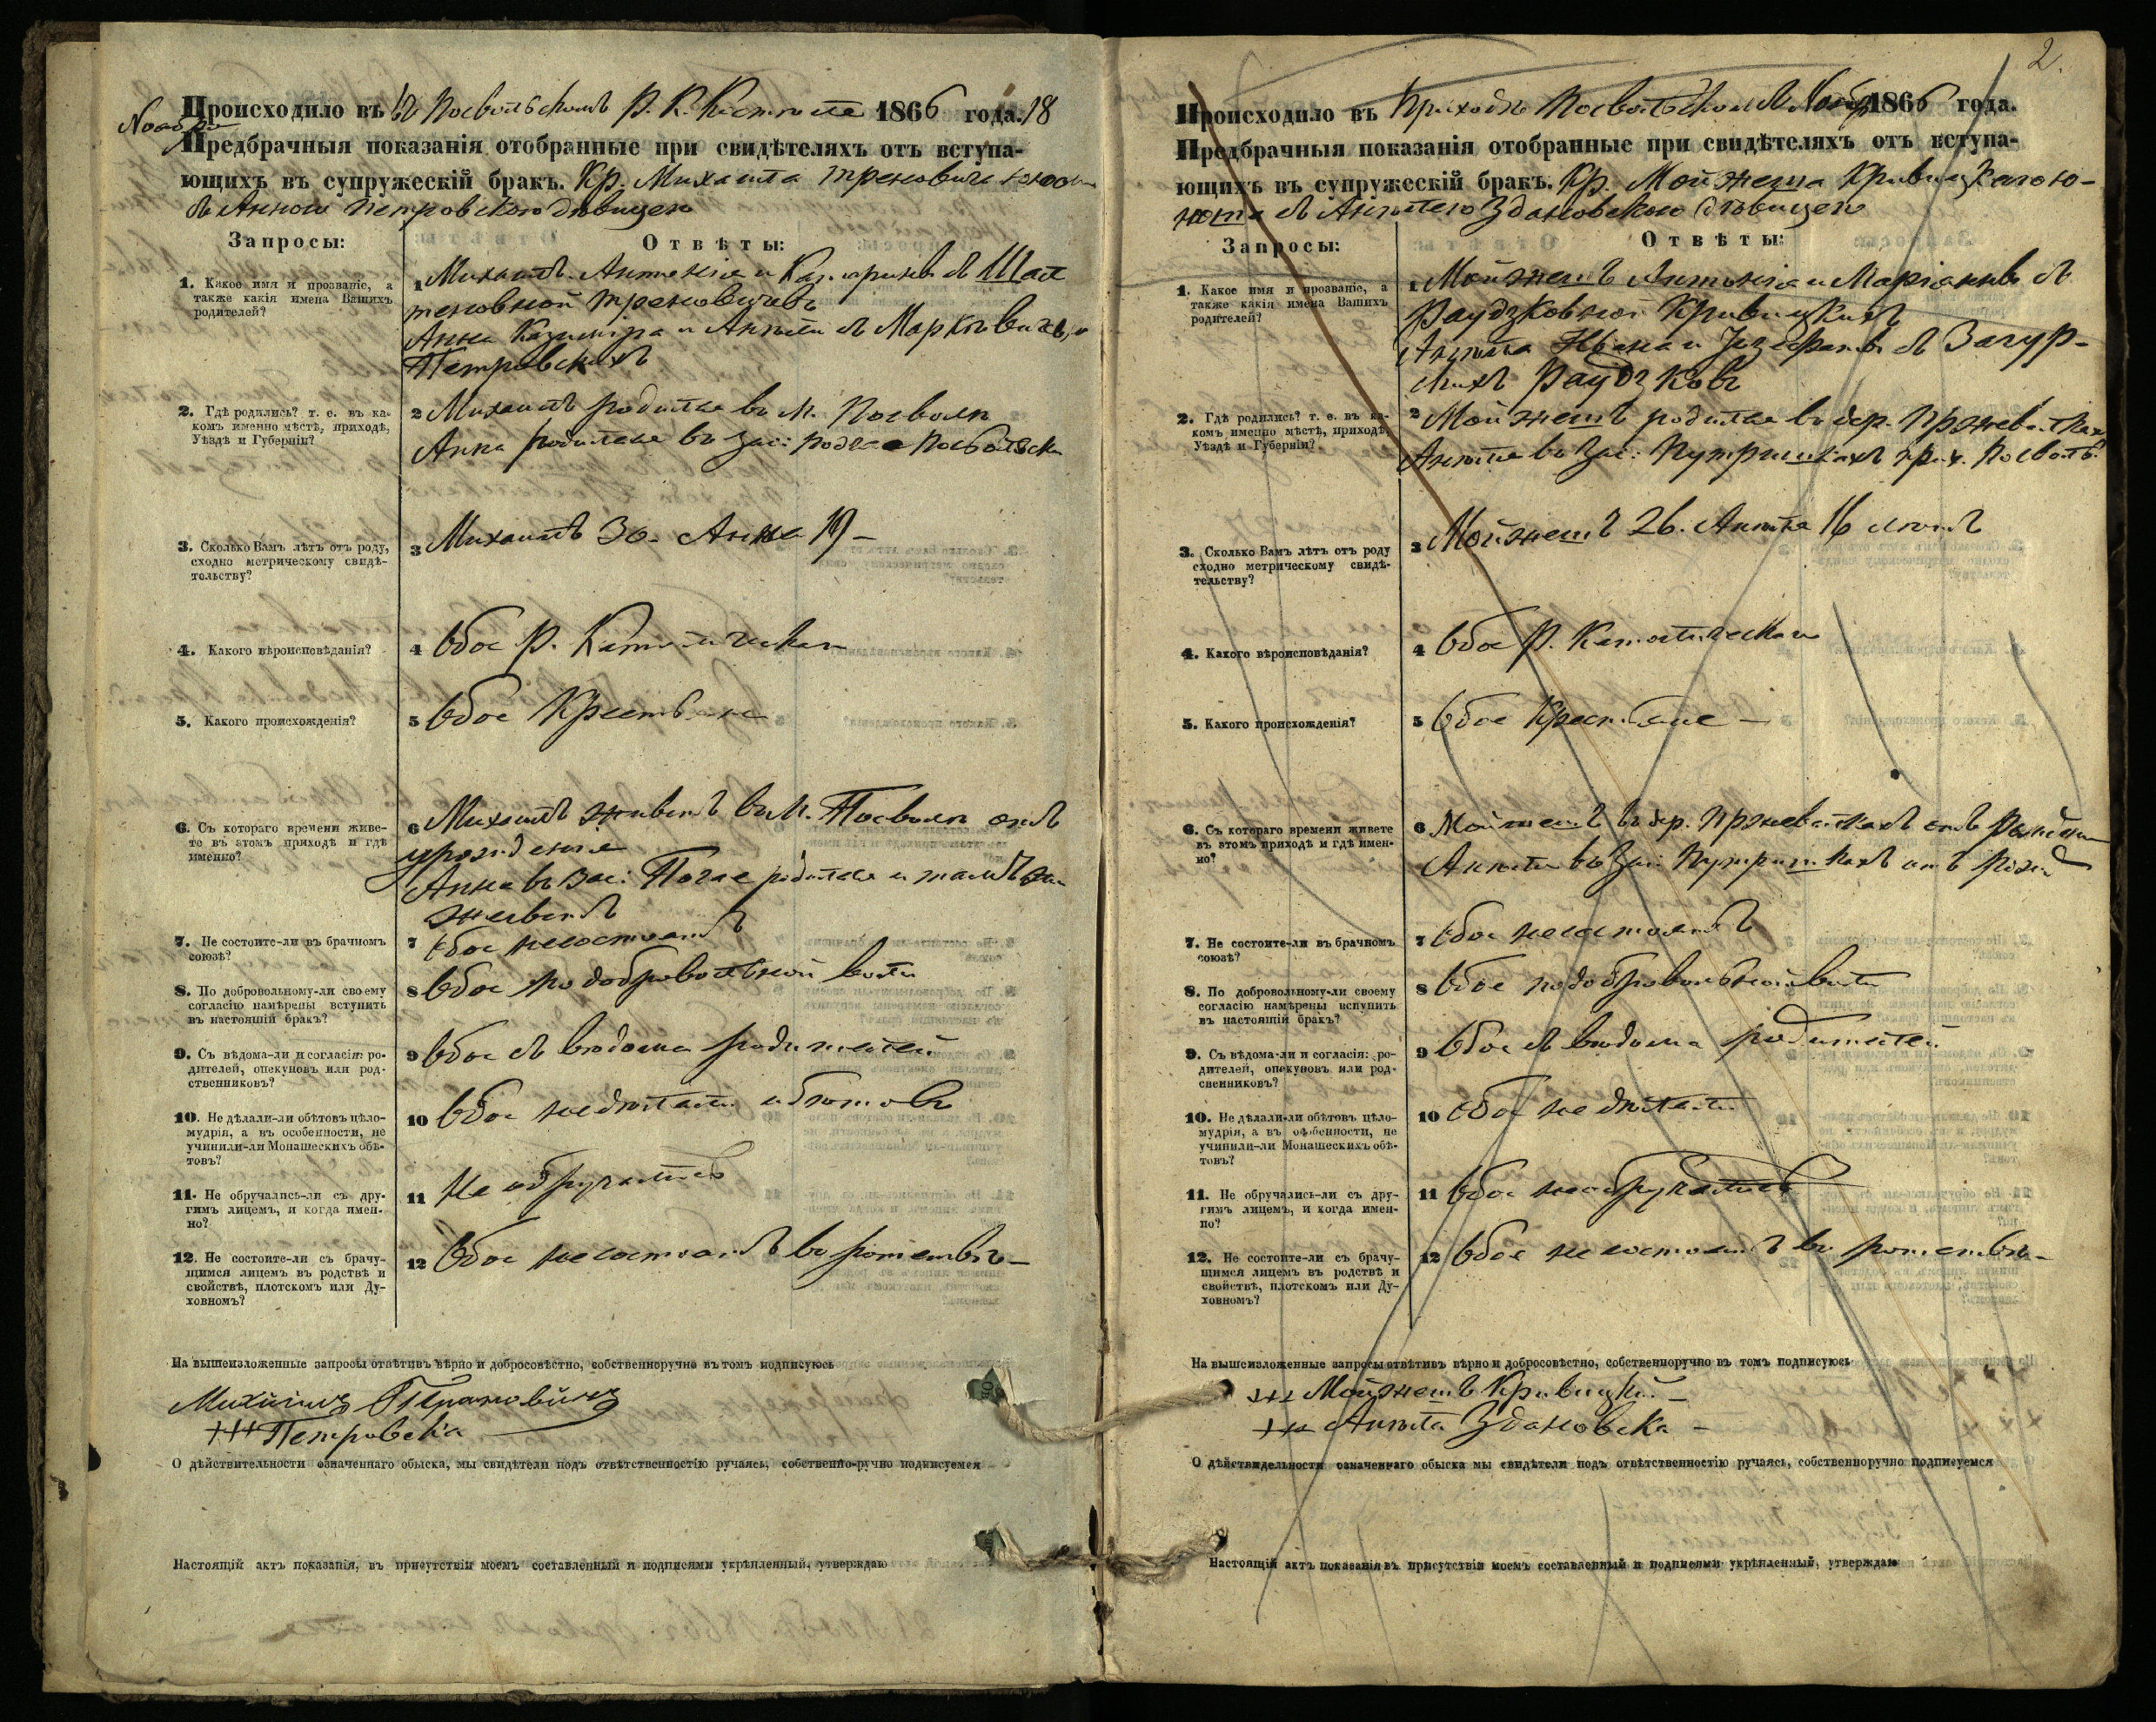 Происходило въ въ Посвольскомъ Р. К. Костеле 1866 года. 18
Ноября
Предбрачныя показанія отобранные при свидѣтеляхъ отъ вступа-
ющихъ въ супружескій бракъ. Кр. Михаила Треновича юнош
съ Анною Петровскою дѣвицею
Запросы: Отвѣты:
1. Какое имя и прозваніе, а
также какія имена Вашихъ
родителей?
1 Михаилъ Антонія и Катарины съ
Треновичевъ
Анна Казимира и Анѣли съ Марк
Петровскихъ
2. Гдѣ родились? т. е. въ ка-
комъ именно мѣстѣ, приходѣ,
Уѣздѣ и Губерніи?
2 Михаилъ родился въ м. Посволи
Анна родилась въ зас: Посвольск
3. Сколько Вамъ лѣтъ отъ роду,
сходно метрическому свидѣ-
тельству?
3 Михаилъ 30. Анна 19 –
4. Какого вѣроисповѣданія?
4 Обое Р. Католическаго
5. Какого происхожденія?
5 Обое Крестьяне
6. Съ котораго времени живе-
те въ этомъ приходѣ и гдѣ
именно?
6 Михаилъ живетъ въ м. Посволи отъ
урожденія
Анна въ зас: родилась и тамъ
живетъ
7. Не состоите-ли въ брачномъ
союзѣ?
7 Обое несостоятъ
8. По добровольному-ли своему
согласію намѣрены вступить
въ настоящій бракъ?
8 Обое по добровольной воли
9. Съ вѣдома-ли и согласія: ро-
дителей, опекуновъ или род-
ственниковъ?
9 Обое съ вѣдома родителей
10. Не дѣлали-ли обѣтовъ цѣло-
мудрія, а въ особенности, не
учинили-ли Монашескихъ обѣ-
товъ?
10 Обое недѣлали обѣтовъ
11. Не обручались-ли съ дру-
гимъ лицемъ, и когда имен-
но?
11 Не обручались
12. Не состоите-ли съ брачу-
щимся лицемъ въ родствѣ и
свойствѣ, плотскомъ или Ду-
ховномъ?
12 Обое несостоятъ въ родствѣ –
На вышеизложенные запросы отвѣтивъ вѣрно и добросовѣстно, собственноручно въ томъ подписуюсь
Михаилъ
+++ Петровска
О дѣйствительности означеннаго обыска, мы свидѣтели подъ отвѣтственностію ручаясь, собственно-ручно подписуемся
Настоящій актъ показанія, въ присутствіи моемъ составленный и подписями укрѣпленный, утверждаю
2.
Происходило въ Приходѣ Посвольскомъ Ноябр 1866 года.
Предбрачныя показанія отобранные при свидѣтеляхъ отъ вступа-
ющихъ въ супружескій бракъ. Кр. Мойжеша Кривицкаго ю-
ноша съ Анѣлею Здановскою дѣвицею
Запросы: Отвѣты:
1. Какое имя и прозваніе, а
также какія имена Вашихъ
родителей?
1 Мойжешъ Антонія и Маріанны съ
Раудзковной Кривицкихъ
Анѣля Ивана и Іозефаты съ Загур-
скихъ
2. Гдѣ родились? т. е. въ ка-
комъ именно мѣстѣ, приходѣ,
Уѣздѣ и Губерніи?
2 Мойжешъ родился въ дер.
Анѣля въ Зас: Путришкахъ прих. Посволь.
3. Сколько Вамъ лѣтъ отъ роду
сходно метрическому свидѣ-
тельству?
3 Мойжешъ 26. Анѣля 16 лѣтъ
4. Какого вѣроисповѣданія?
4 Обое Р. Католическаго
5. Какого происхожденія?
5 Обое Крестьяне –
6. Съ котораго времени живете
въ этомъ приходѣ и гдѣ имен-
но?
6 Мойжешъ въ дер. отъ
Анѣля въ Зас: Путришкахъ отъ
7. Не состоите-ли въ брачномъ
союзѣ?
7 Обое несостоятъ
8. По добровольному-ли своему
согласію намѣрены вступить
въ настоящій бракъ?
8 Обое подобровольной воли
9. Съ вѣдома-ли и согласія: ро-
дителей, опекуновъ или род-
свенниковъ?
9 Обое съ вѣдома родителей
10. Не дѣлали-ли обѣтовъ цѣло-
мудрія, а въ особенности, не
учинили-ли Монашескихъ обѣ-
товъ?
10 Обое недѣлали
11. Не обручались-ли съ дру-
гимъ лицемъ, и когда имен-
но?
11 Обое необручались
12. Не состоите-ли съ брачу-
щимся лицемъ въ родствѣ и
свойствѣ, плотскомъ или Ду-
ховномъ?
12 Обое несостоятъ въ родствѣ –
На вышеизложенные запросы отвѣтивъ вѣрно и добросовѣстно, собственноручно въ томъ подписуюсь
+++ Мойжешъ Кривицкій –
+++ Анѣля Здановска –
О дѣйствидельности означеннаго обыска мы свидѣтели подъ отвѣтственностію ручаясь, собственноручно подписуемся
Настоящій актъ показанія въ присутствіи моемъ составленный и подписями укрѣпленный, утверждаю